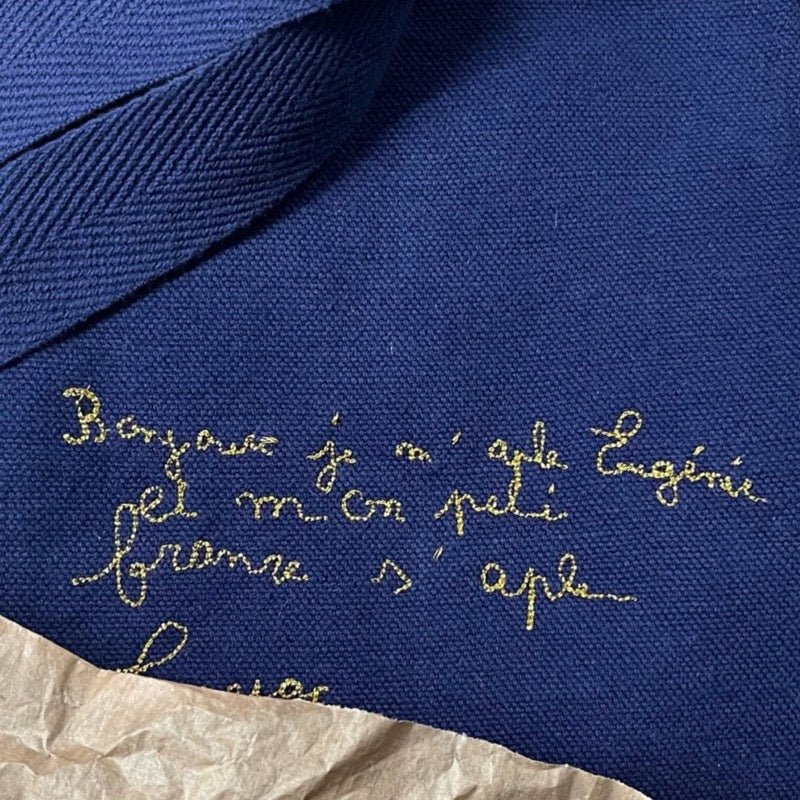 Bonjour je m'aple Eugénie
et mon peti
franre s'aple